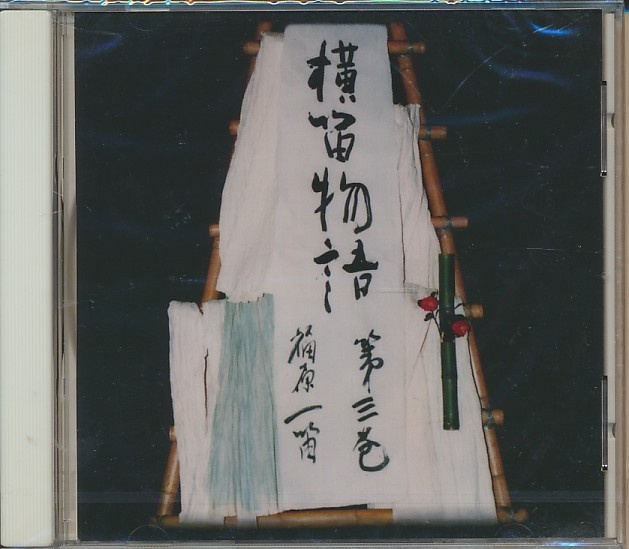 横笛物語
第三巻
福原一笛